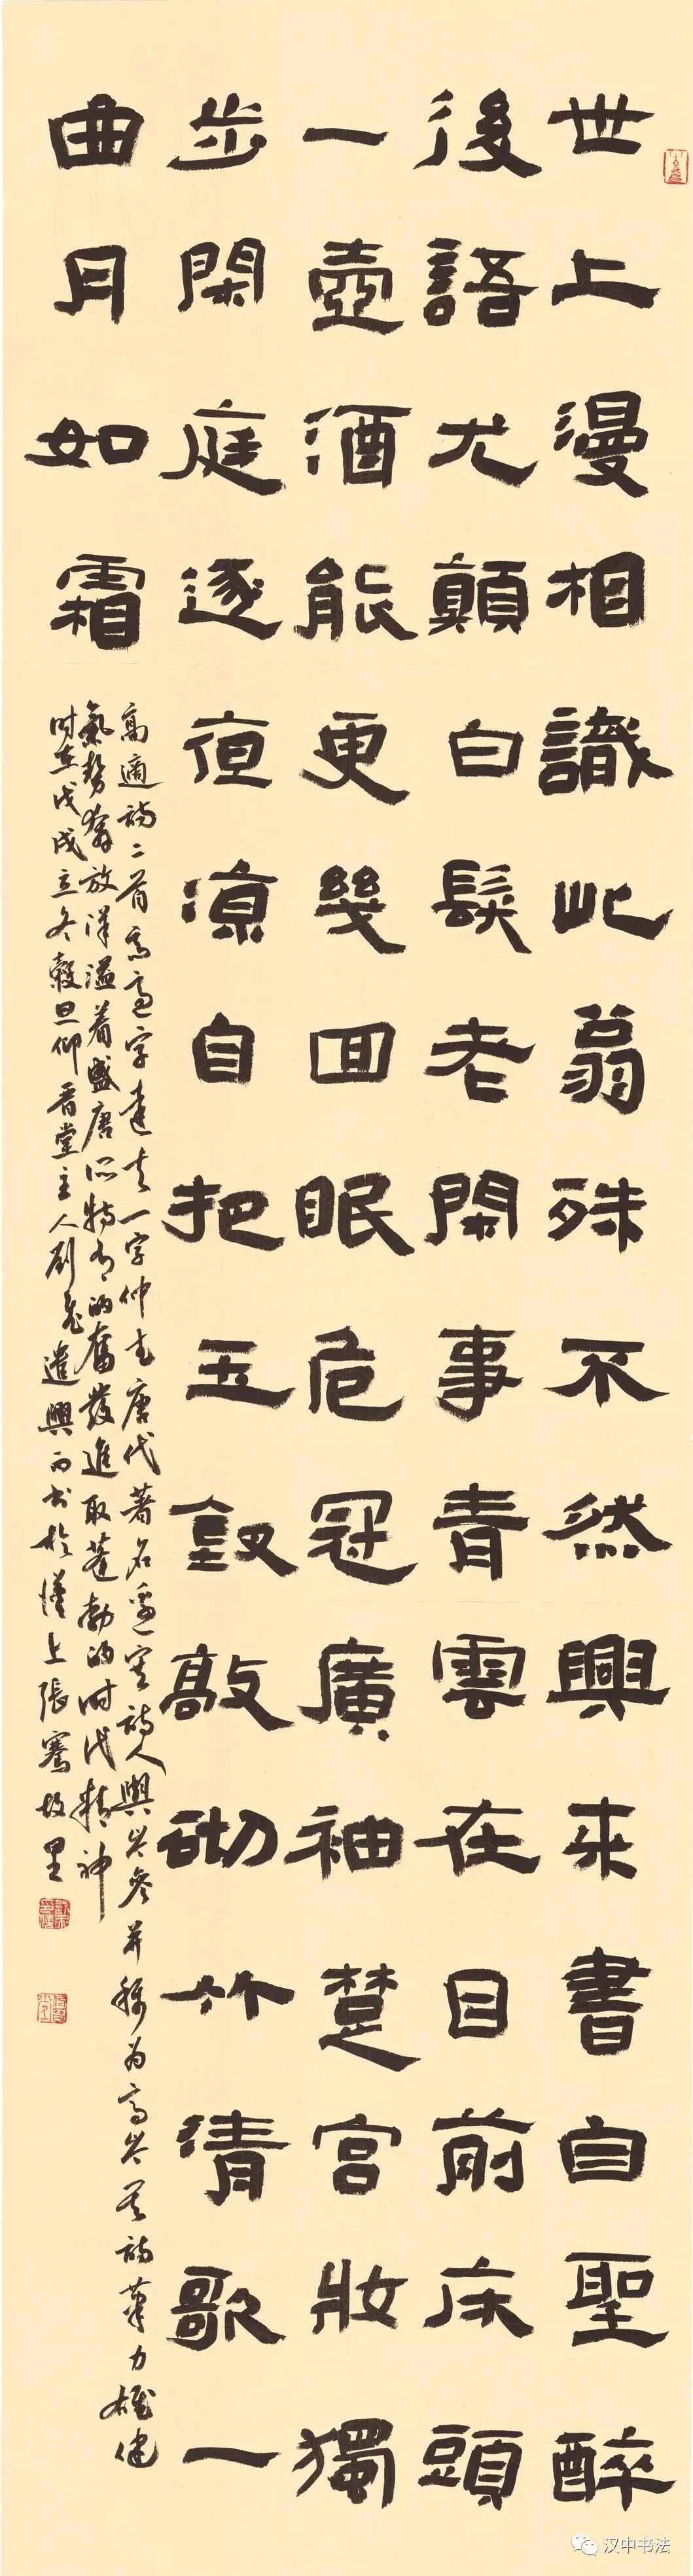 世上漫相識此翁殊不然興來書自聖醉
後語尤顛白髮老閑事青雲在目前床頭
一壺酒能更幾回眠危冠廣袖楚宮妝獨
步閑庭逐夜涼自把玉釵敲砌竹清歌一
曲月如霜
高適詩二首高適字達夫一字仲武唐代著名邊塞詩人與岑參并稱為高岑其詩筆力雄健
氣勢奔放洋溢着盛唐所特有的奮發進取蓬勃的时代精神
时在戊戌立冬穀旦仰晋堂主人刻
遣興而书於漢上張騫故里
汉中书法